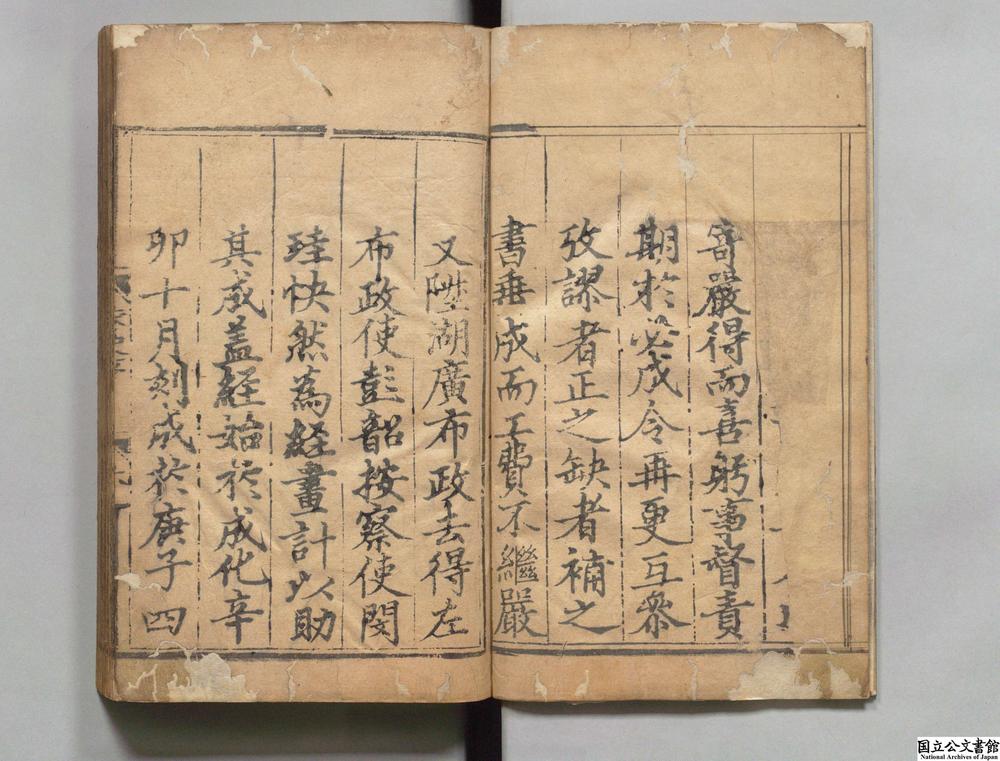 寄嚴得而喜躬事督責
期於必成令再更互叅
攷謬者正之缺者補之
書垂成而工費不繼嚴
又陞湖廣布政去得左
布政使彭韶按察使閔
珪快然為經畫計以助
其成盖経始於成化辛
卯十月刻成於庚子四
国立公文書館
National Archives of Japan